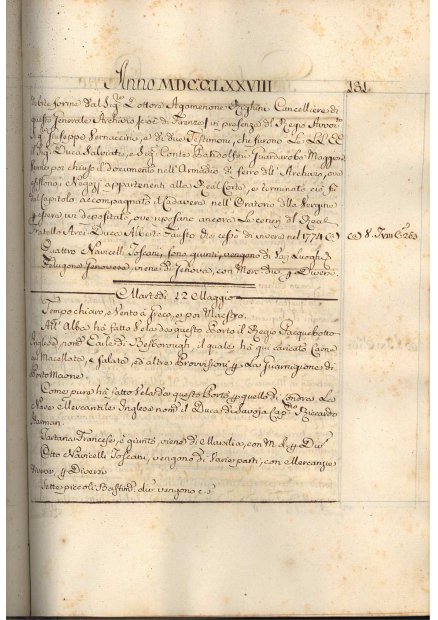 Anno MDCCLXXVIII 181
debite forme dal Sig.r Dottore Agamenone Cancelliere di
questo Generale Archivio di Firenze in presenza del Regio
Sig. Giuseppe Vernaccini, e di due Testimoni, che furono Le LL. EE.
il Sig. Duca Salviati, e Sig. Conte Bardi Guardaroba Maggiore
fu poi chiuso il documento nell'Armadio di ferro dell'Archivio, ove
Negozi appartenenti alla Real Corte, e terminato ciò, fu
dal Capitolo accompagnato il Cadavere nell'Oratorio della Vergine
per esservi depositato, ove riposano ancora Le ceneri del Real
Fratello Arci-Duca Alberto che cessò di vivere nel 1774 (a) (a) 8.
Quattro Navicelli Toscani, sono giunti, vengono di Var. Luoghi
Feluga Genovese, viene di Genova, con Mer. Div. e Diversi.
Martedì 12 Maggio
Tempo chiaro, e Vento a Greco, e poi Maestro.
All'Alba ha fatto Vela da questo Porto il Regio Pacquebotto
Inglese nom.to Earle di Besborough, il quale ha qui caricato Carne
Macellata, e salata, ed altre Provvisioni p. La Guarnigione di
Porto Maone.
Come pure ha fatto Vela da questo Porto p. quello di Londra La
Nave Mercantile Inglese nom.ta il Duca di Savoja Cap. Riccardo
Tartana Francese, è giunta, viene di Marsilia, con M. d. p. Div.
Otto Navicelli Toscani, vengono di Varie parti, con Mercanzie
diverse, p. Diversi
Sette piccoli Bastim. div. vengono c. s.